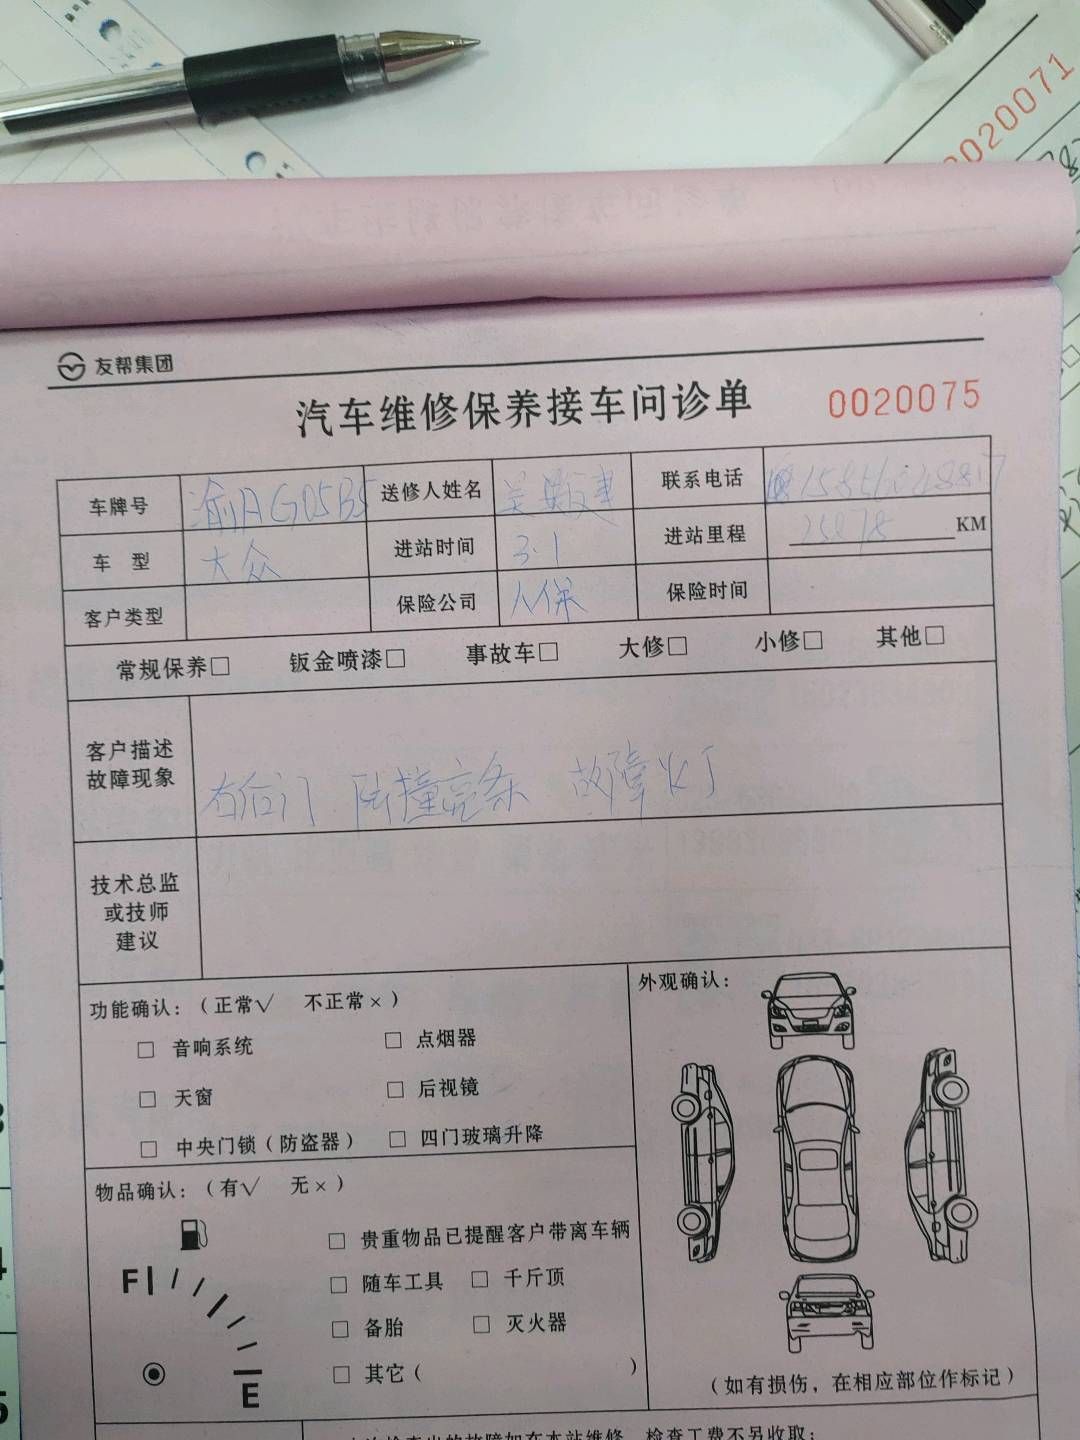 0020071
友帮集团
汽车维修保养接车问诊单 0020075
车牌号 渝AG05B5 送修人姓名 联系电话
车 型 大众 进站时间 3.1 进站里程 KM
客户类型 保险公司 人保 保险时间
常规保养□ 钣金喷漆□ 事故车□ 大修□ 小修□ 其他□
客户描述
故障现象
右后门 防撞亮条 故障灯
技术总监
或技师
建议
功能确认：（正常√ 不正常×）
□ 音响系统 □ 点烟器
□ 天窗 □ 后视镜
□ 中央门锁（防盗器） □ 四门玻璃升降
外观确认：
（如有损伤，在相应部位作标记）
物品确认：（有√ 无×）
F
E
□ 贵重物品已提醒客户带离车辆
□ 随车工具 □ 千斤顶
□ 备胎 □ 灭火器
□ 其它（ ）
检查出的故障如在本站维修，检查工费不另收取；